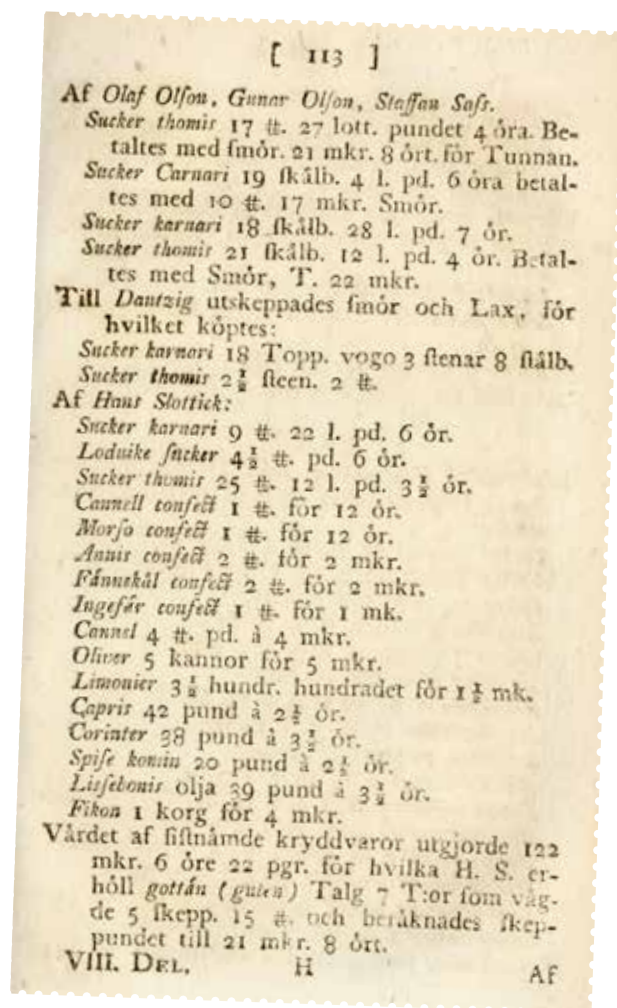 [ 113 ]
Af Olaf Olſon, Gunar Olſon, Staffan Saſs.
Sucker thomis 17 ℔. 27 lott. pundet 4 óra. Be-
taltes med ſmór. 21 mkr. 8 órt. fór Tunnan.
Sucker Carnari 19 ſkålb. 4 l. pd. 6 óra betal-
tes med 10 ℔. 17 mkr. Smór.
Sucker karnari 18 ſkålb. 28 l. pd. 7 ór.
Sucker thomis 21 ſkålb. 12 l. pd. 4 ór. Betal-
tes med Smór, T. 22 mkr.
Till Dantzig utskeppades ſmór och Lax, fór
hvilket kóptes:
Sucker karnari 18 Topp. vogo 3 ſtenar 8 ſkålb.
Sucker thomis 2½ ſteen. 2 ℔.
Af Hans Slottick:
Sucker karnari 9 ℔. 22 l. pd. 6 ór.
Loduike ſucker 4½ ℔. pd. 6 ór.
Sucker thomis 25 ℔. 12 l. pd. 3½ ór.
Cannell confect 1 ℔. fór 12 ór.
Morſo confect 1 ℔. fór 12 ór.
Annis confect 2 ℔. fór 2 mkr.
Fånnekål confect 2 ℔. fór 2 mkr.
Ingefár confect 1 ℔. fór 1 mk.
Cannel 4 ℔. pd. à 4 mkr.
Oliver 5 kannor fór 5 mkr.
Limonier 3½ hundr. hundradet fór 1½ mk.
Capris 42 pund à 2½ ór.
Corinter 38 pund à 3½ ór.
Spiſe komin 20 pund à 2½ ór.
Lisſebonis olja 39 pund à 3½ ór.
Fikon 1 korg fór 4 mkr.
Vårdet af ſiſtnåmde kryddvaror utgjorde 122
mkr. 6 óre 22 pgr. fór hvilka H. S. er-
hóll gottån (guten) Talg 7 T:or ſom våg-
de 5 ſkepp. 15 ℔. och beråknades ſkep-
pundet till 21 mkr. 8 órt.
VIII. DEL. H Af